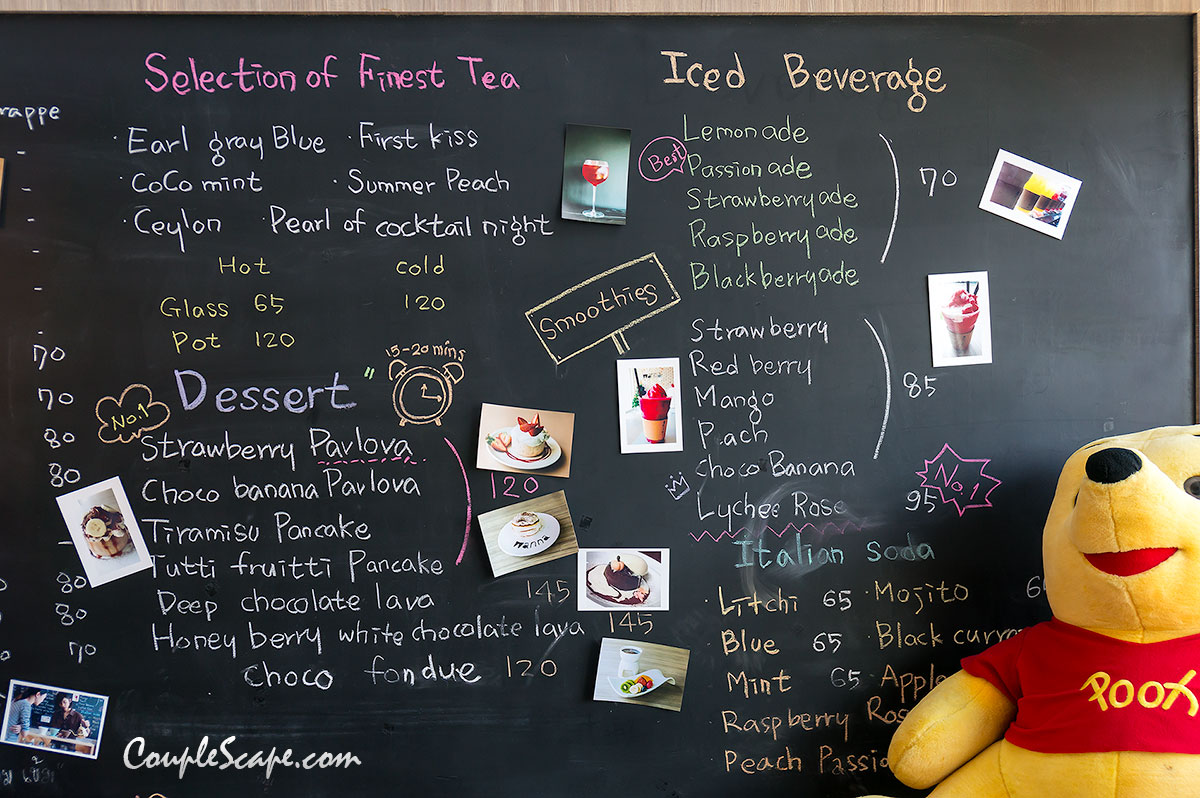 rappe
70
70
80
80
80
80
70
Selection of Finest Tea
· Earl gray Blue · First kiss
· CoCo mint · Summer Peach
· Ceylon · Pearl of cocktail night
Hot cold
Glass 65 120
Pot 120
15-20 mins
Dessert
No.1
Strawberry Pavlova
Choco banana Pavlova
120
Tiramisu Pancake
Tutti fruitti Pancake
Deep chocolate lava 145
Honey berry white chocolate lava 145
choco fondue 120
manna
Iced Beverage
Lemonade
Best
Passion ade
70
Strawberry ade
Raspberry ade
Blackberry ade
Smoothies
Strawberry
Red berry
Mango
85
Peach
Choco Banana
Lychee Rose 95
No.1
Italian soda
· Litchi 65 · Mojito
· Blue 65 · Black curra
· Mint 65 · Apple
· Raspberry Ros
· Peach Passio
POOH
CoupleScape.com